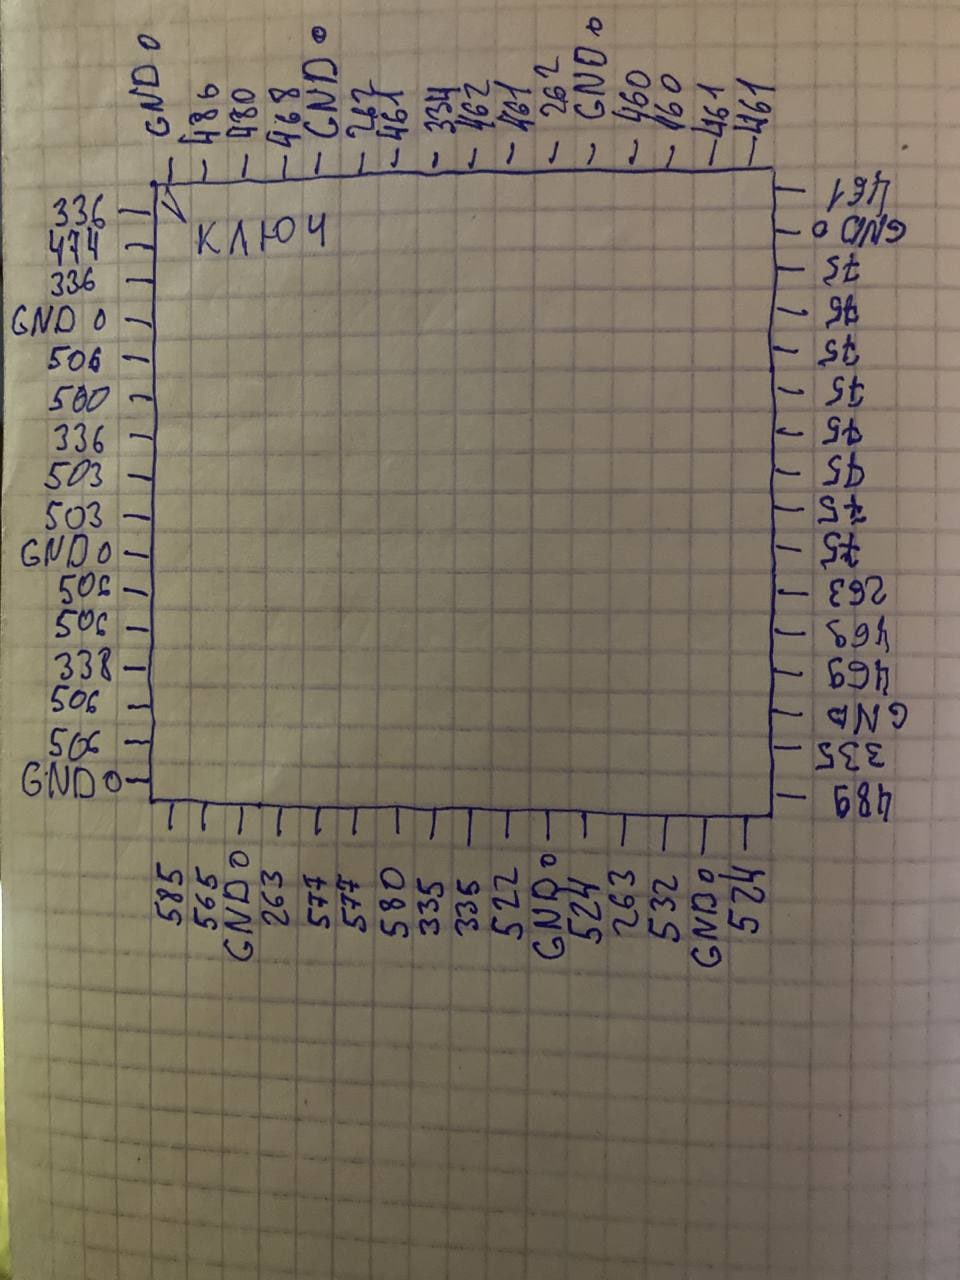 GND 0
486
480
468
GND 0
262
461
334
462
461
262
GND 0
460
460
461
461
КЛЮЧ
336
474
336
GND 0
506
500
336
503
503
GND 0
506
506
338
506
506
GND 0
585
565
GND 0
263
577
577
580
335
335
522
GND 0
524
263
532
GND 0
524
461
GND 0
75
75
75
75
75
75
75
263
469
469
GND
335
489